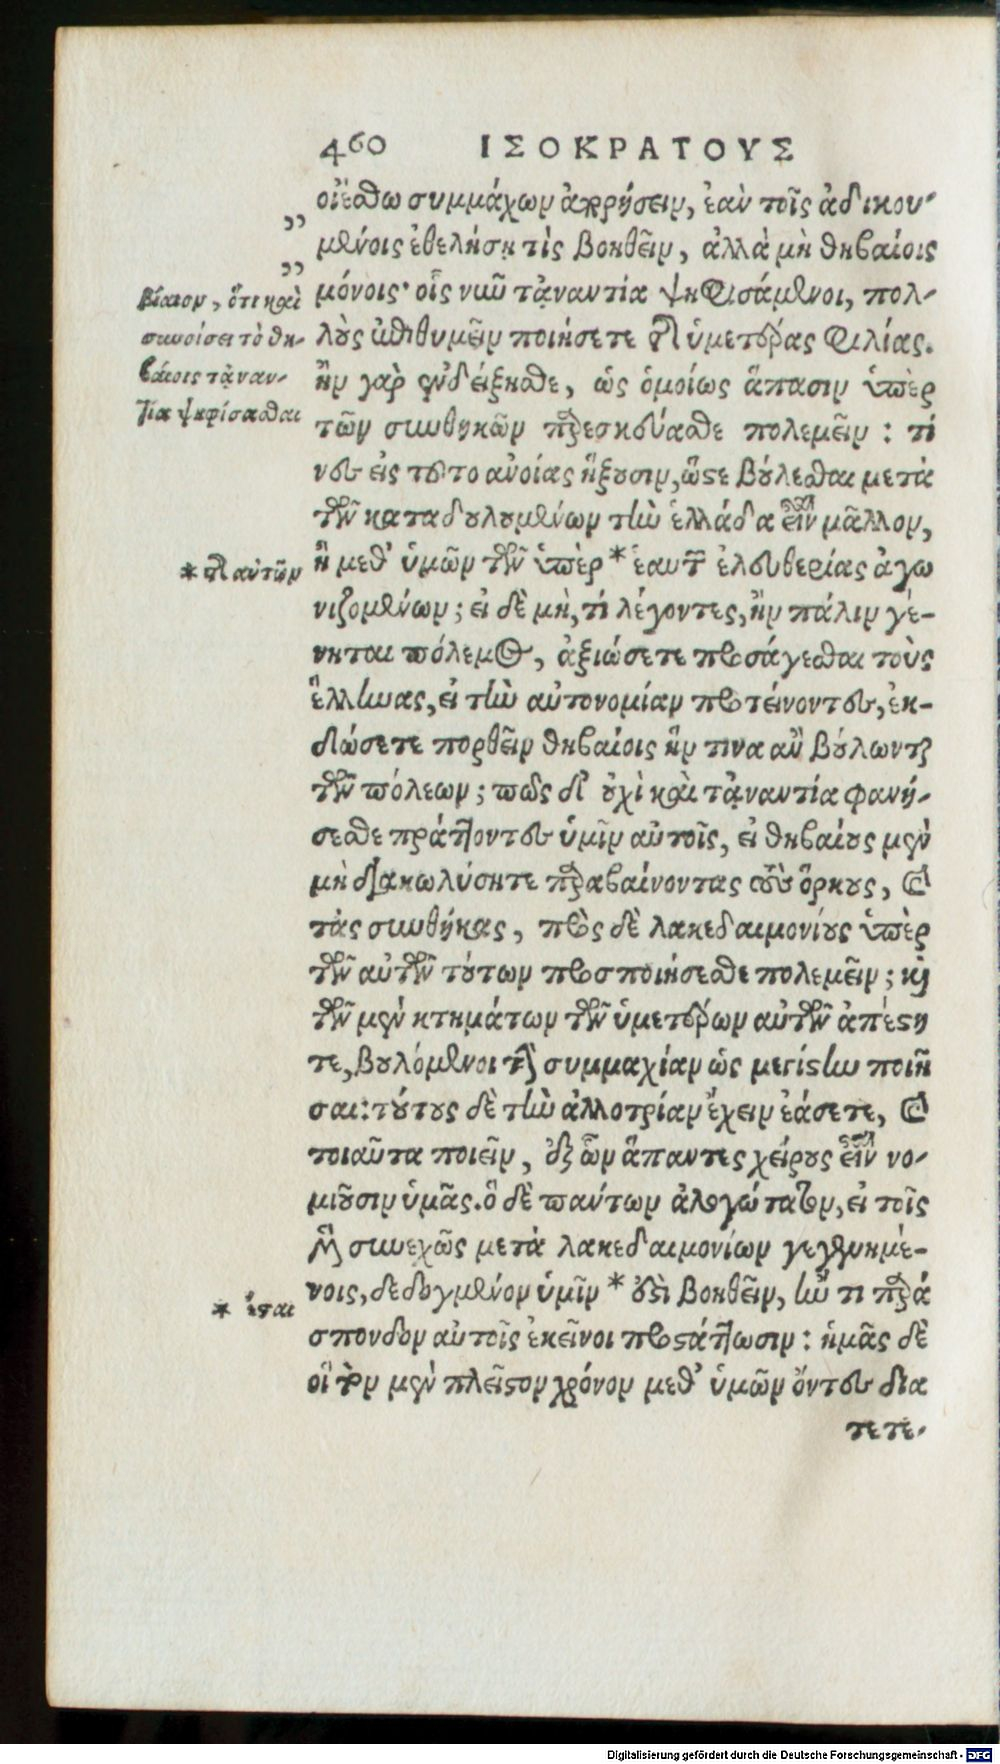 460 ΙΣΟΚΡΑΤΟΥΣ
οἰέσθω συμμάχων ἀπορήσειν, ἐὰν τοῖς ἀδικου-
μένοις ἐθελήσῃ τὶς βοηθεῖν, ἀλλὰ μὴ θηβαίοις
μόνοις· οἷς νυῦ τἀναντία ψηφισάμενοι, πολ-
λοὺς ἐπιθυμεῖν ποιήσετε τῆς ὑμετέρας φιλίας.
ἢν γὰρ ἐνδείξησθε, ὡς ὁμοίως ἅπασιν ὑπὲρ
τῶν συνθηκῶν παρεσκεύασθε πολεμεῖν : τί
νες εἰς τοῦτο ἀνοίας ἥξουσιν, ὥστε βούλεσθαι μετὰ
τῶν καταδουλουμένων τὴν ἑλλάδα εἶναι μᾶλλον,
ἢ μεθ' ὑμῶν τῶν ὑπὲρ * ἑαυτῶν ἐλευθερίας ἀγω
νιζομένων; εἰ δὲ μὴ, τί λέγοντες, ἢν πάλιν γέ-
νηται πόλεμος, ἀξιώσετε προσάγεσθαι τοὺς
ἕλληνας, εἰ τὴν αὐτονομίαν προτείνοντες, ἐκ-
δώσετε πορθεῖν θηβαίοις ἣν τινα ἂν βούλωνται
τῶν πόλεων; πῶς δ' οὐχὶ καὶ τἀναντία φανή-
σεσθε πράττοντες ὑμῖν αὐτοῖς, εἰ θηβαίους μὲν
μὴ διακωλύσητε παραβαίνοντας τοὺς ὅρκους, καὶ
τὰς συνθήκας, πρὸς δὲ λακεδαιμονίους ὑπὲρ
τῶν αὐτῶν τούτων προσποιήσεσθε πολεμεῖν; καὶ
τῶν μὲν κτημάτων τῶν ὑμετέρων αὐτῶν ἀπέστη
τε, βουλόμενοι τὴν συμμαχίαν ὡς μεγίστην ποιῆ
σαι: τούτους δὲ τὴν ἀλλοτρίαν ἔχειν ἐάσετε, καὶ
τοιαῦτα ποιεῖν, ἐξ ὧν ἅπαντες χείρους εἶναι νο-
μιοῦσιν ὑμᾶς. ὃ δὲ πάντων ἀλογώτατον, εἰ τοῖς
μὲν συνεχῶς μετὰ λακεδαιμονίων γεγενημέ-
νοις, δεδογμένον ὑμῖν * ἐστὶ βοηθεῖν, ἤν τι παρά
σπονδον αὐτοῖς ἐκεῖνοι προστάττωσιν : ἡμᾶς δὲ
οἳ τὸν μὲν πλεῖστον χρόνον μεθ' ὑμῶν ὄντες δια
τετε-
„
„
βίαιον, ὅτι καὶ
συνοίσει τὸ θη-
βαίοις τἀναν-
τία ψηφίσασθαι
* τῆς αὑτῶν
* ἔσται
Digitalisierung gefördert durch die Deutsche Forschungsgemeinschaft - DFG